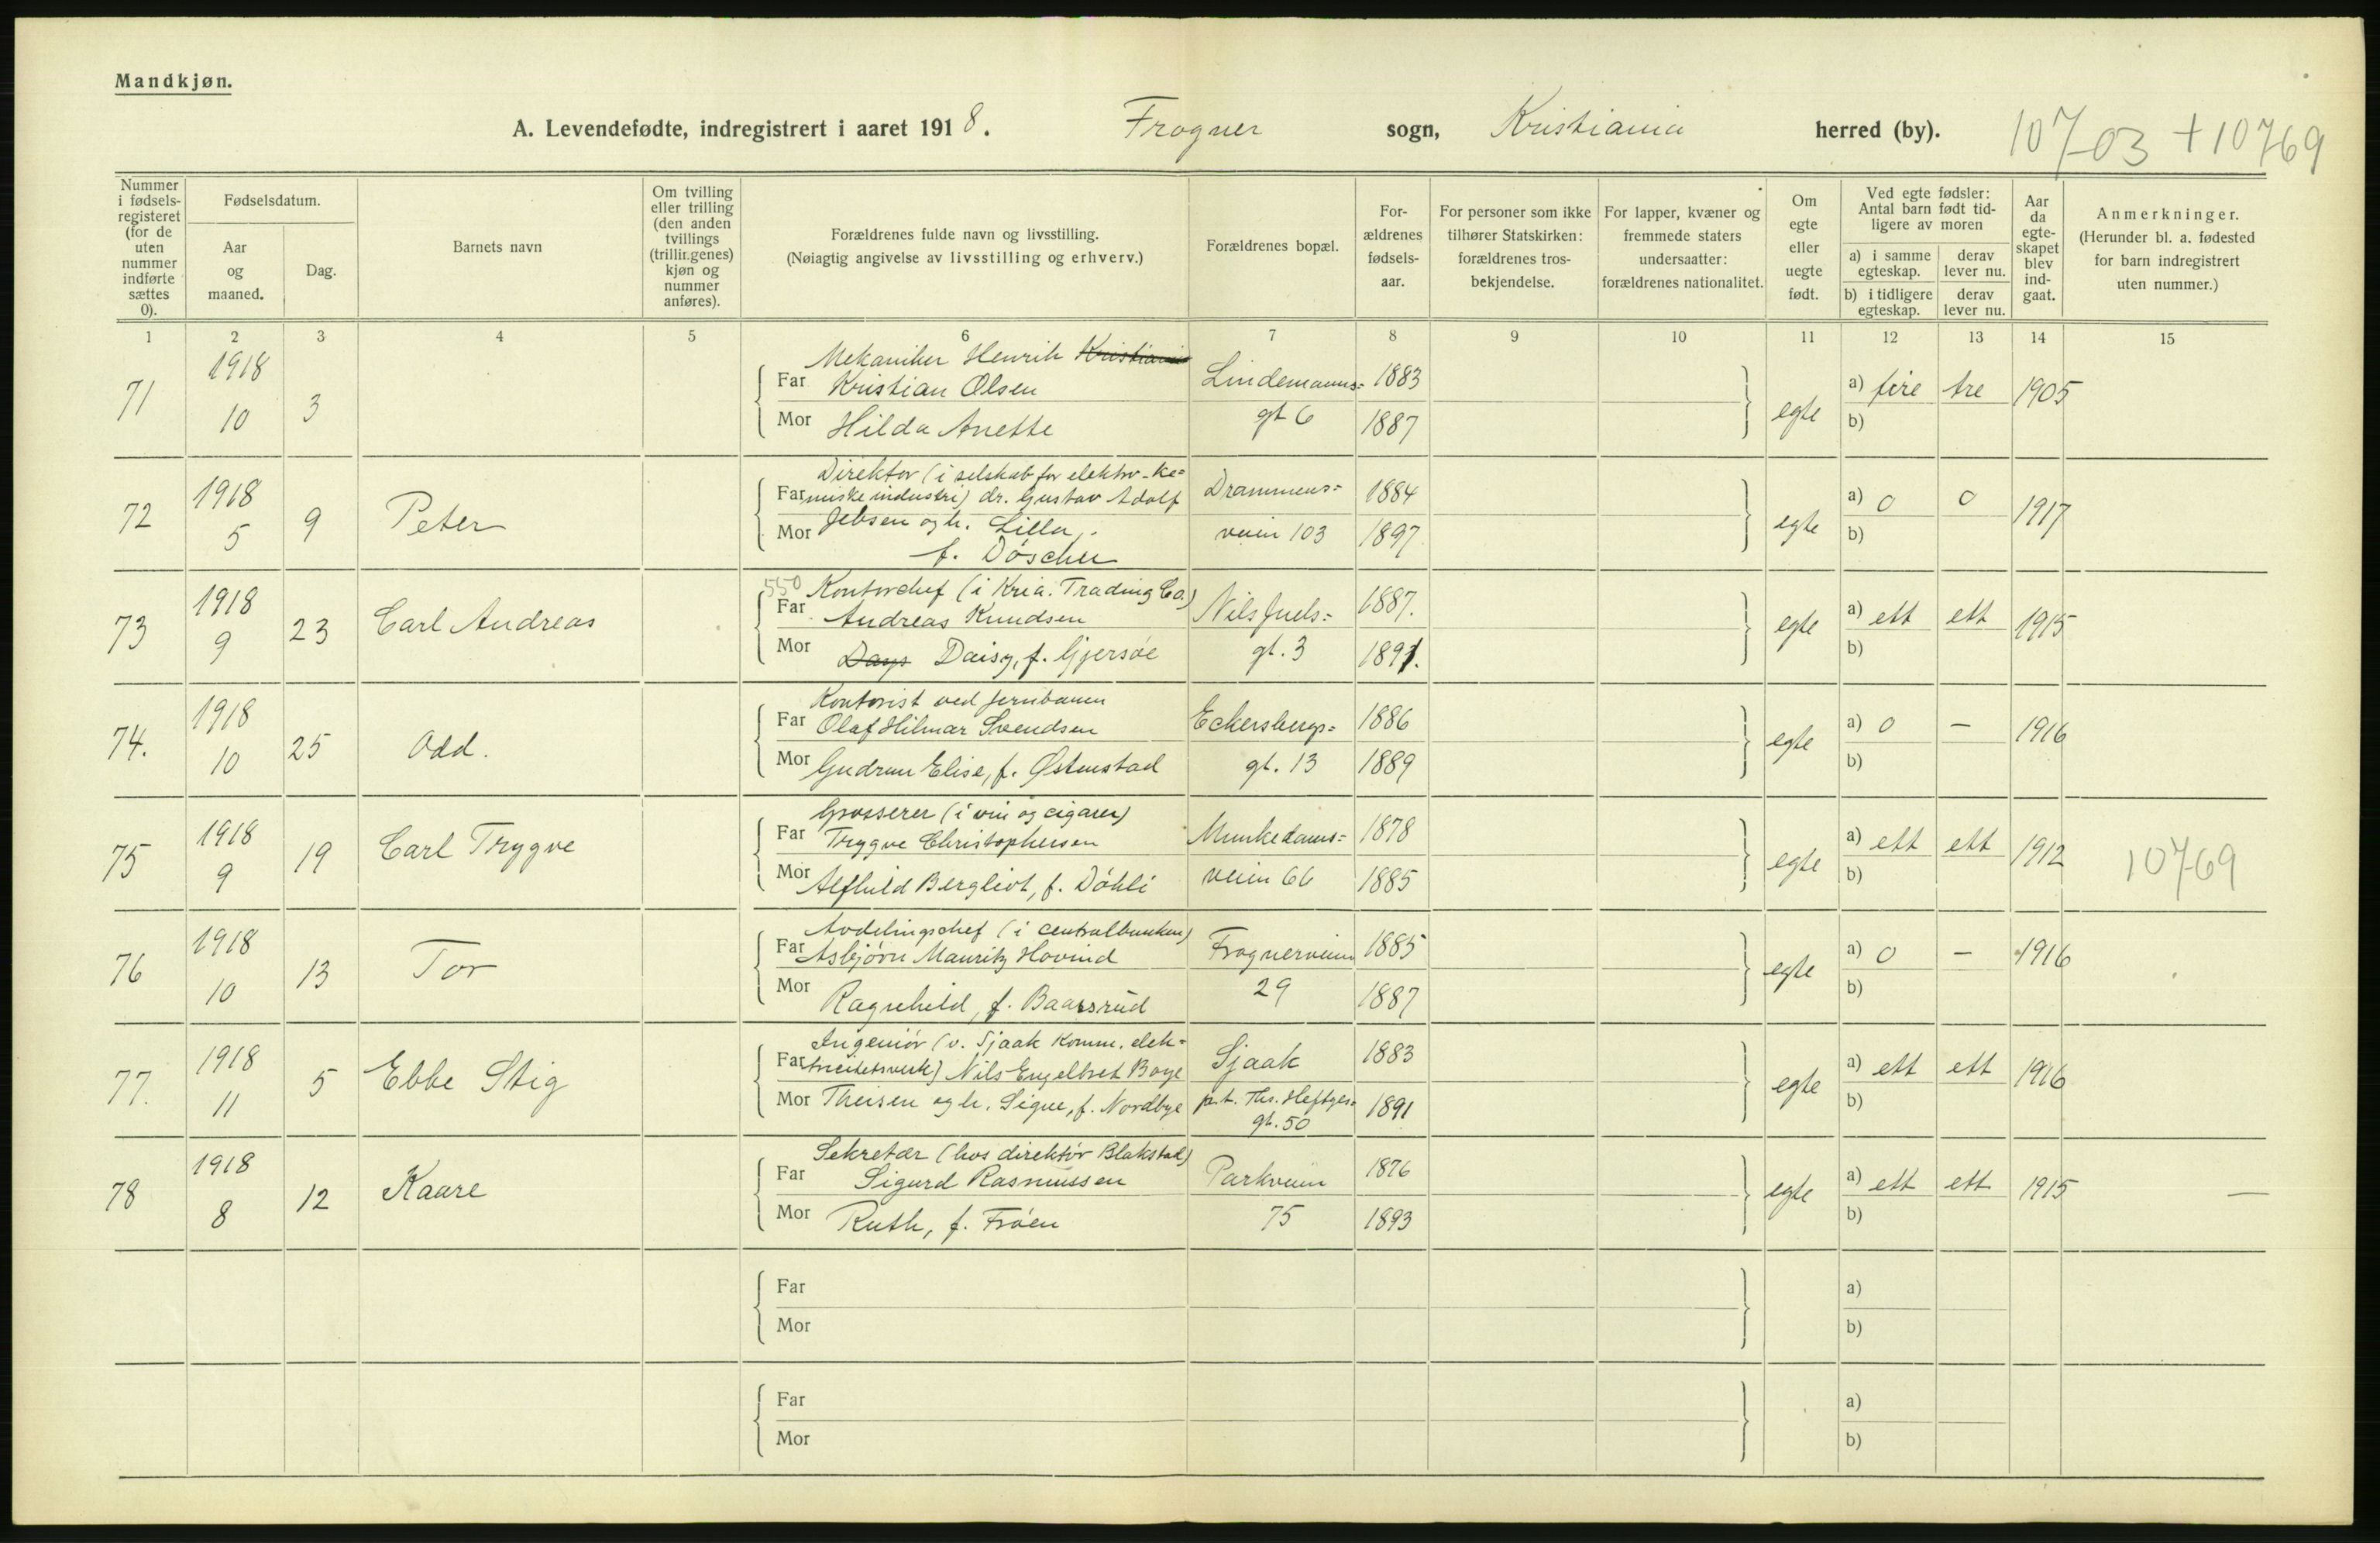 Mandkjøn.
A. Levendefødte, indregistrert i aaret 1918. Frogner sogn, Kristiania herred (by). 10703 + 10769
Nummer i fødselsregisteret (for de uten nummer indførte sættes 0).
Fødselsdatum.
Aar og maaned.
Dag.
Barnets navn
Om tvilling eller trilling (den anden tvillings (trillingenes) kjøn og nummer anføres).
Forældrenes fulde navn og livsstilling.
(Nøiagtig angivelse av livsstilling og erhverv.)
Forældrenes bopæl.
Forældrenes fødselsaar.
For personer som ikke tilhører Statskirken: forældrenes trosbekjendelse.
For lapper, kvæner og fremmede staters undersaatter: forældrenes nationalitet.
Om egte eller uegte født.
Ved egte fødsler: Antal barn født tidligere av moren
a) i samme egteskap. derav lever nu.
b) i tidligere egteskap. derav lever nu.
Aar da egteskapet blev indgaat.
Anmerkninger.
(Herunder bl. a. fødested for barn indregistrert uten nummer.)
1 2 3 4 5 6 7 8 9 10 11 12 13 14 15
71 1918 10 3
Mekaniker Henrik Kristiania
Far Kristian Olsen Lindemanns= 1883
Mor Hilda Anette gt 6 1887
egte a) fire tre 1905
b)
72 1918 5 9 Peter
Direktør (i selskab for elektro-ke=
Far miske industri) dr. Gustav Adolf Drammens= 1884
Mor Jebsen og h. Lilla, veien 103 1897
f. Döscher
egte a) 0 0 1917
b)
73 1918 9 23 Carl Andreas
550 Kontorchef (i Kria. Trading Co.)
Far Andreas Knudsen Nils Juels= 1887.
Mor Days Daisy, f. Gjersøe gt. 3 1891.
egte a) ett ett 1915
b)
74. 1918 10 25 Odd.
Kontorist ved jernbanen
Far Olaf Hilmar Svendsen Eckersbergs= 1886
Mor Gudrun Elise, f. Østenstad gt. 13 1889
egte a) 0 — 1916
b)
75 1918 9 19 Carl Trygve
Grosserer (i vin og cigarer)
Far Trygve Christophersen Munkedams= 1878
Mor Alfhild Bergliot, f. Döhli veien 66 1885
egte a) ett ett 1912 10769
b)
76 1918 10 13 Tor
Avdelingschef (i centralbanken)
Far Asbjørn Mauritz Hovind Frognerveien 1885
Mor Ragnhild, f. Baarsrud 29 1887
egte a) 0 — 1916
b)
77. 1918 11 5 Ebbe Stig
Ingeniör (v. Sjaak Komm. elek=
Far tricitetsverk) Nils Engelbret Boye Sjaak 1883
Mor Theisen og h. Signe, f. Nordbye p.t. Ths. Heftyes= 1891
gt. 50
egte a) ett ett 1916
b)
78 1918 8 12 Kaare
Sekretær (hos direktör Blakstad)
Far Sigurd Rasmussen Parkveien 1876
Mor Ruth, f. Fröen 75 1893
egte a) ett ett 1915 —
b)
Far a)
Mor b)
Far a)
Mor b)